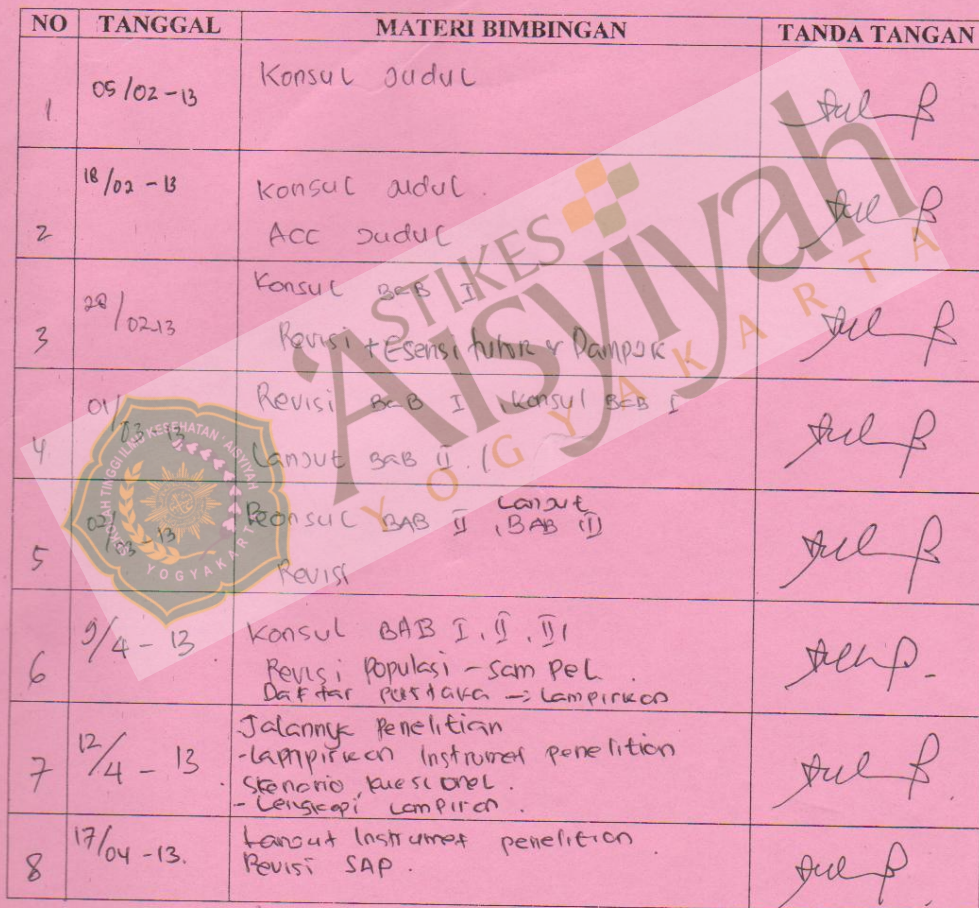 NO TANGGAL MATERI BIMBINGAN TANDA TANGAN
1 05/02-13 Konsul Judul
2 18/02-13 Konsul Judul.
ACC Judul
3 28/02-13 Konsul BAB I
Revisi + Esensi & Dampak
4 01/03-13 Revisi BAB I, Konsul BAB I
Lanjut BAB II.
5 02/03-13 Konsul BAB II, Lanjut BAB III
Revisi
6 9/4-13 Konsul BAB I, II, III
Revisi Populasi - Sampel.
Daftar pustaka → Lampirkan
7 12/4-13 Jalannya Penelitian
- Lampirkan Instrumen penelitian
Skenario, kuesioner.
- Lengkapi Lampiran.
8 17/04-13. Lanjut Instrumen penelitian
Revisi SAP.
STIKES
'Aisyiyah
YOGYAKARTA
SEKOLAH TINGGI ILMU KESEHATAN · AISYIYAH
YOGYAKARTA